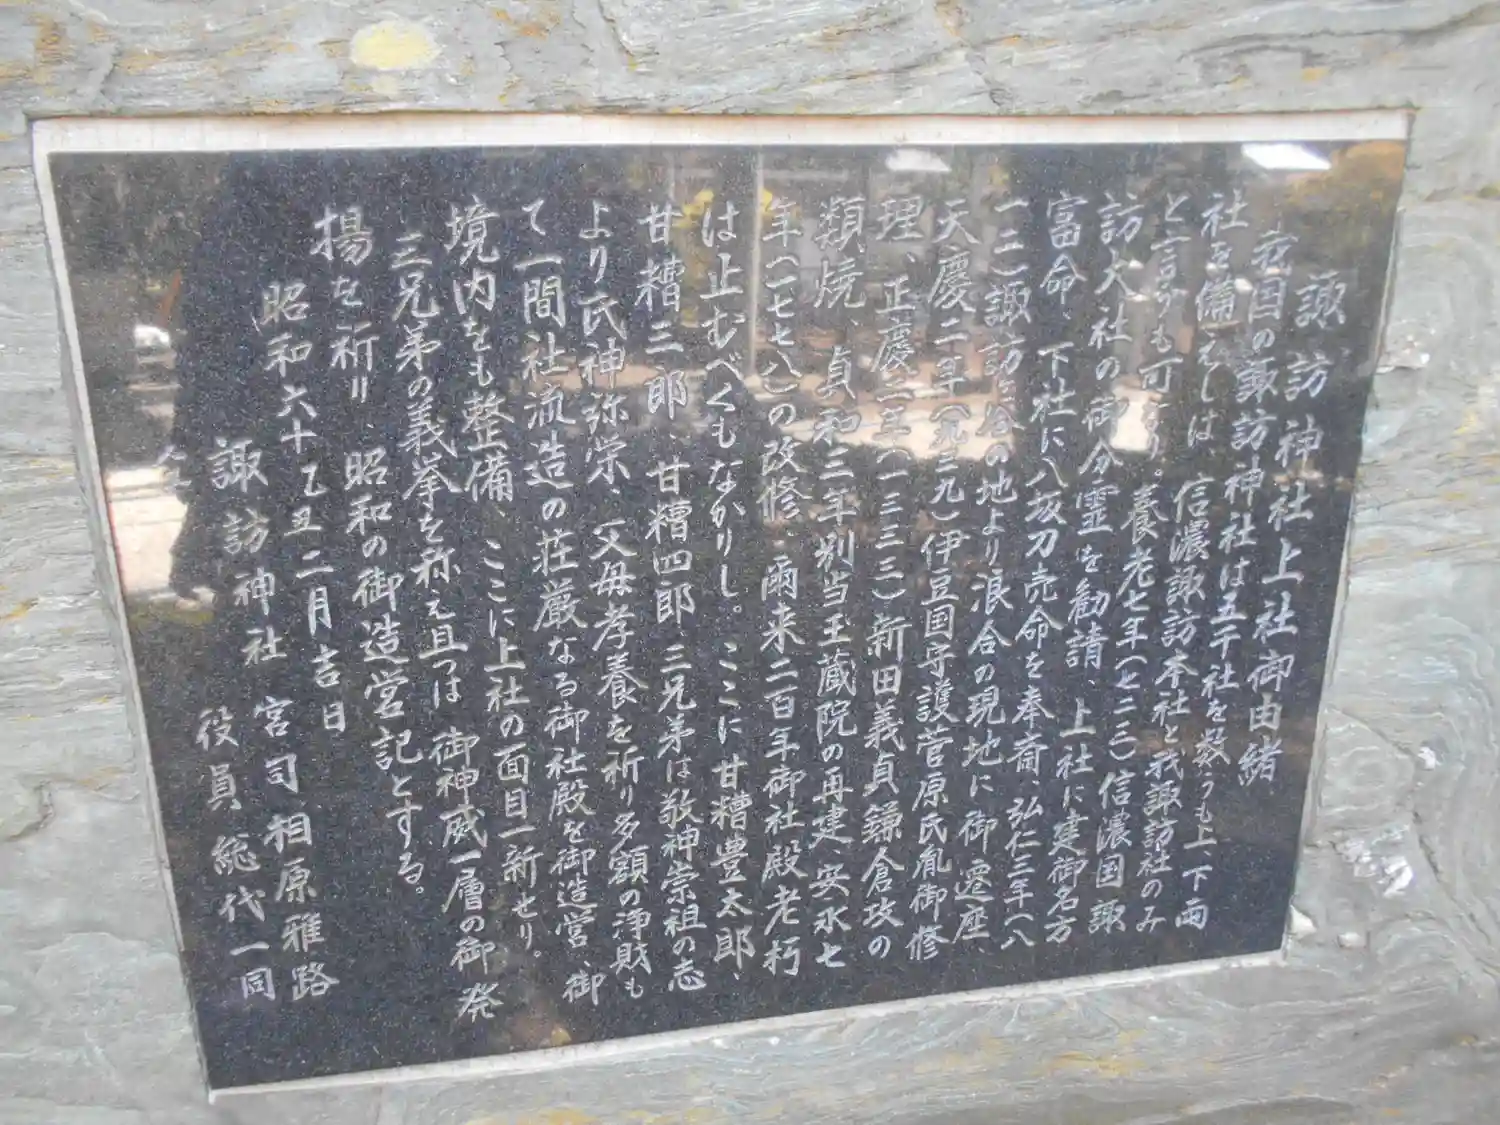 諏訪神社上社御由緒
我国の諏訪神社は五千社を数うも上、下両
社を備えしは、信濃諏訪本社と我諏訪社のみ
と言うも可なり。養老七年(七二三)信濃国諏
訪大社の御分霊を勧請、上社に建御名方
富命、下社に八坂刀売命を奉斎、弘仁三年(八
一二)諏訪ヶ谷の地より浪合の現地に御遷座、
天慶二年(九三九)伊豆国守護菅原氏胤御修
理、正慶二年(一三三三)新田義貞鎌倉攻の
類焼、貞和三年別当玉蔵院の再建、安永七
年(一七七八)の改修、爾来二百年御社殿老朽
は止むべくもなかりし。ここに甘糟豊太郎、
甘糟三郎、甘糟四郎、三兄弟は敬神崇祖の志
より氏神弥栄、父母孝養を祈り多額の浄財も
て一間社流造の荘厳なる御社殿を御造営、御
境内をも整備、ここに上社の面目一新せり。
三兄弟の義挙を称え且つは御神威一層の御発
揚を祈り、昭和の御造営記とする。
昭和六十乙丑二月吉日
諏訪神社 宮司相原雅路
役員総代一同